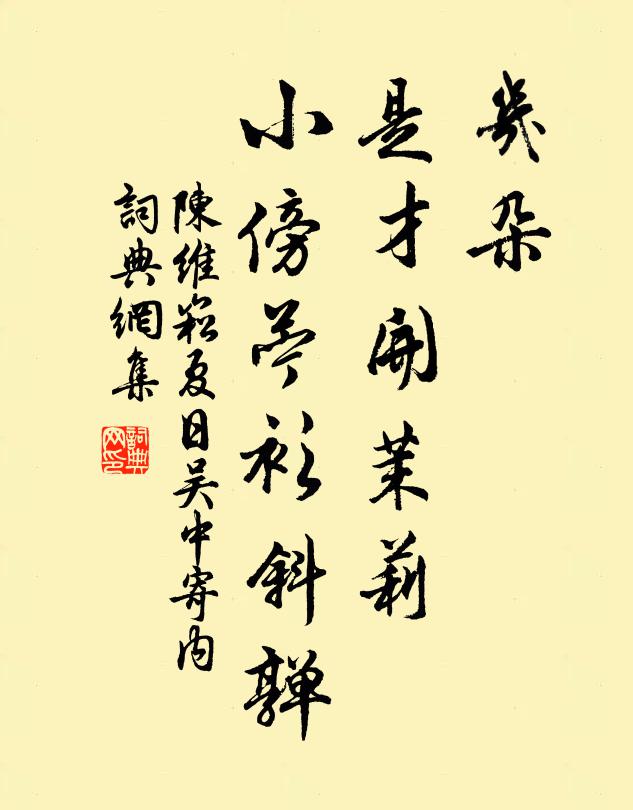 幾朵
是才開茉莉
小傍苧衫斜嚲
陳維崧夏日吳中寄内
詞典網集
詞典网印